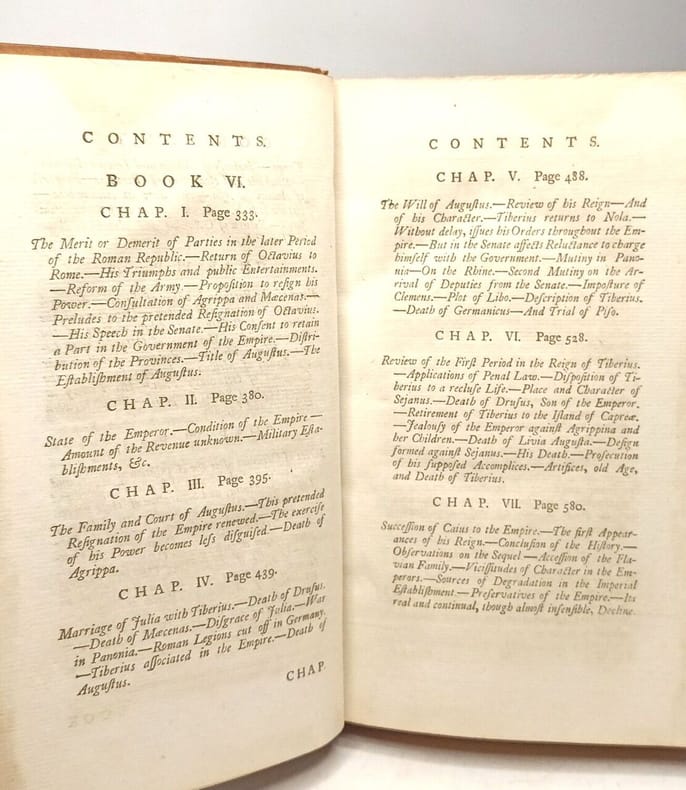 CONTENTS.
BOOK VI.
CHAP. I. Page 333.
The Merit or Demerit of Parties in the later Period
of the Roman Republic.—Return of Octavius to
Rome.—His Triumphs and public Entertainments.
—Reform of the Army.—Proposition to resign his
Power.—Consultation of Agrippa and Mæcenas.—
Preludes to the pretended Resignation of Octavius.
—His Speech in the Senate.—His Consent to retain
a Part in the Government of the Empire.—Distri-
bution of the Provinces.—Title of Augustus.—The
Establishment of Augustus.
CHAP. II. Page 380.
State of the Emperor.—Condition of the Empire—
Amount of the Revenue unknown.—Military Esta-
blishments, &c.
CHAP. III. Page 395.
The Family and Court of Augustus.—This pretended
Resignation of the Empire renewed.—The exercise
of his Power becomes less disguised.—Death of
Agrippa.
CHAP. IV. Page 439.
Marriage of Julia with Tiberius.—Death of Drusus.
—Death of Mæcenas.—Disgrace of Julia.—War
in Panonia.—Roman Legions cut off in Germany.
—Tiberius associated in the Empire.—Death of
Augustus.
CHAP.
CONTENTS.
CHAP. V. Page 488.
The Will of Augustus.—Review of his Reign—And
of his Character.—Tiberius returns to Nola.—
Without delay, issues his Orders throughout the Em-
pire.—But in the Senate affects Reluctance to charge
himself with the Government.—Mutiny in Pano-
nia—On the Rhine.—Second Mutiny on the Ar-
rival of Deputies from the Senate.—Imposture of
Clemens.—Plot of Libo.—Description of Tiberius.
—Death of Germanicus—And Trial of Piso.
CHAP. VI. Page 528.
Review of the First Period in the Reign of Tiberius.
—Applications of Penal Law.—Disposition of Ti-
berius to a recluse Life.—Place and Character of
Sejanus.—Death of Drusus, Son of the Emperor.
—Retirement of Tiberius to the Island of Capreæ.
—Jealousy of the Emperor against Agrippina and
her Children.—Death of Livia Augusta.—Design
formed against Sejanus.—His Death.—Prosecution
of his supposed Accomplices.—Artifices, old Age,
and Death of Tiberius.
CHAP. VII. Page 580.
Succession of Caius to the Empire.—The first Appear-
ances of his Reign.—Conclusion of the History.—
Observations on the Sequel—Accession of the Fla-
vian Family.—Vicissitudes of Character in the Em-
perors.—Sources of Degradation in the Imperial
Establishment.—Preservatives of the Empire.—Its
real and continual, though almost insensible, Decline.